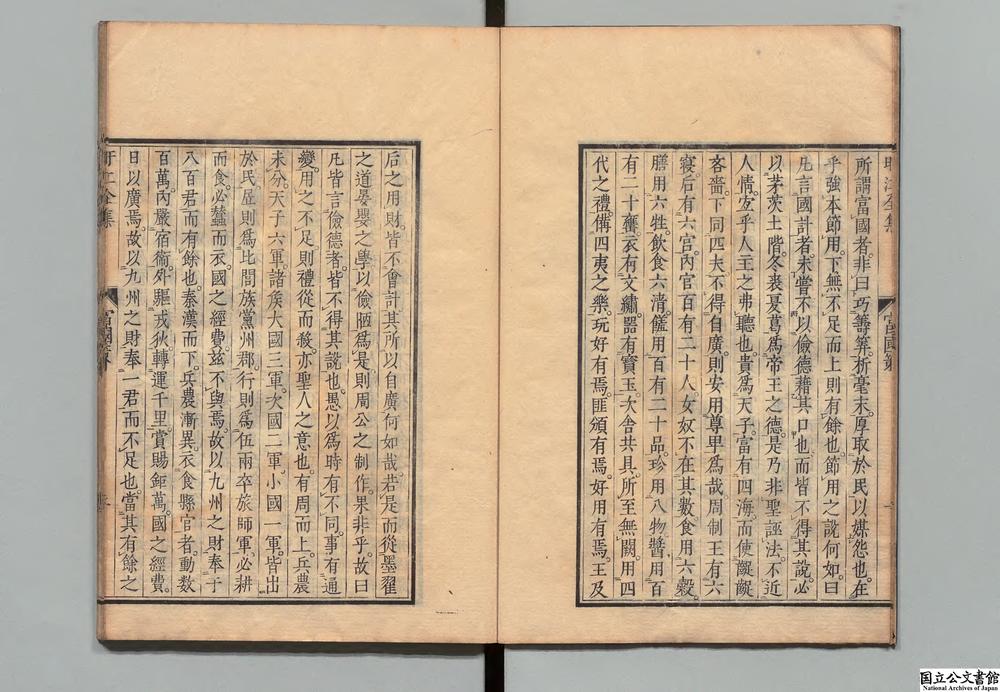 所謂富國者非曰巧籌筭析毫末厚取於民以媒怨也在
乎強本節用下無不足而上則有餘也節用之說何如曰
凡言國計者未嘗不以儉德藉其口也而皆不得其說必
以茅茨土階冬裘夏葛爲帝王之德是乃非聖誣法不近
人情宜乎人主之弗聽也貴爲天子富有四海而使齷齪
吝嗇下同匹夫不得自廣則安用尊卑爲哉周制王有六
寢后有六宮内官百有二十人女奴不在其數食用六穀
膳用六牲飲食六清羞用百有二十品珍用八物醬用百
有二十罋衣有文繡器有寶玉次舍共具所至無闕用四
代之禮僃四夷之樂玩好有焉匪頒有焉好用有焉王及
富國策
后之用財皆不會計其所以自廣何如哉若是而從墨翟
之道晏嬰之學以儉陋爲是則周公之制作果非乎故曰
凡皆言儉德者皆不得其說也愚以爲時有不同事有通
變用之不足則禮從而殺亦聖人之意也有周而上兵農
未分天子六軍諸侯大國三軍次國二軍小國一軍皆出
於民居則爲比閭族黨州鄉行則爲伍兩卒旅師軍必耕
而食必蠶而衣國之經費兹不與焉故以九州之財奉于
八百君而有餘也秦漢而下兵農漸異衣食縣官者動數
百萬内嚴宿衞外驅戎狄轉運千里賞賜鉅萬國之經費
日以廣焉故以九州之財奉一君而不足也當其有餘之
国立公文書館
National Archives of Japan